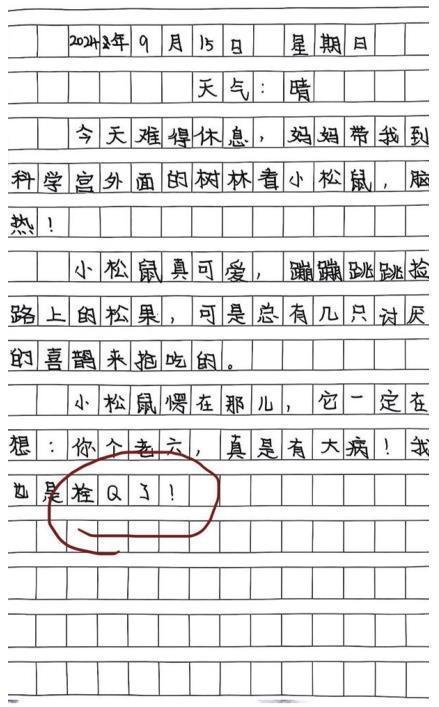 2024年9月15日 星期日
天气：晴
今天难得休息，妈妈带我到
科学宫外面的树林看小松鼠，脑
热！
小松鼠真可爱，蹦蹦跳跳捡
路上的松果，可是总有几只讨厌
的喜鹊来抢吃的。
小松鼠愣在那儿，它一定在
想：你个老六，真是有大病！我
也是栓Q了！